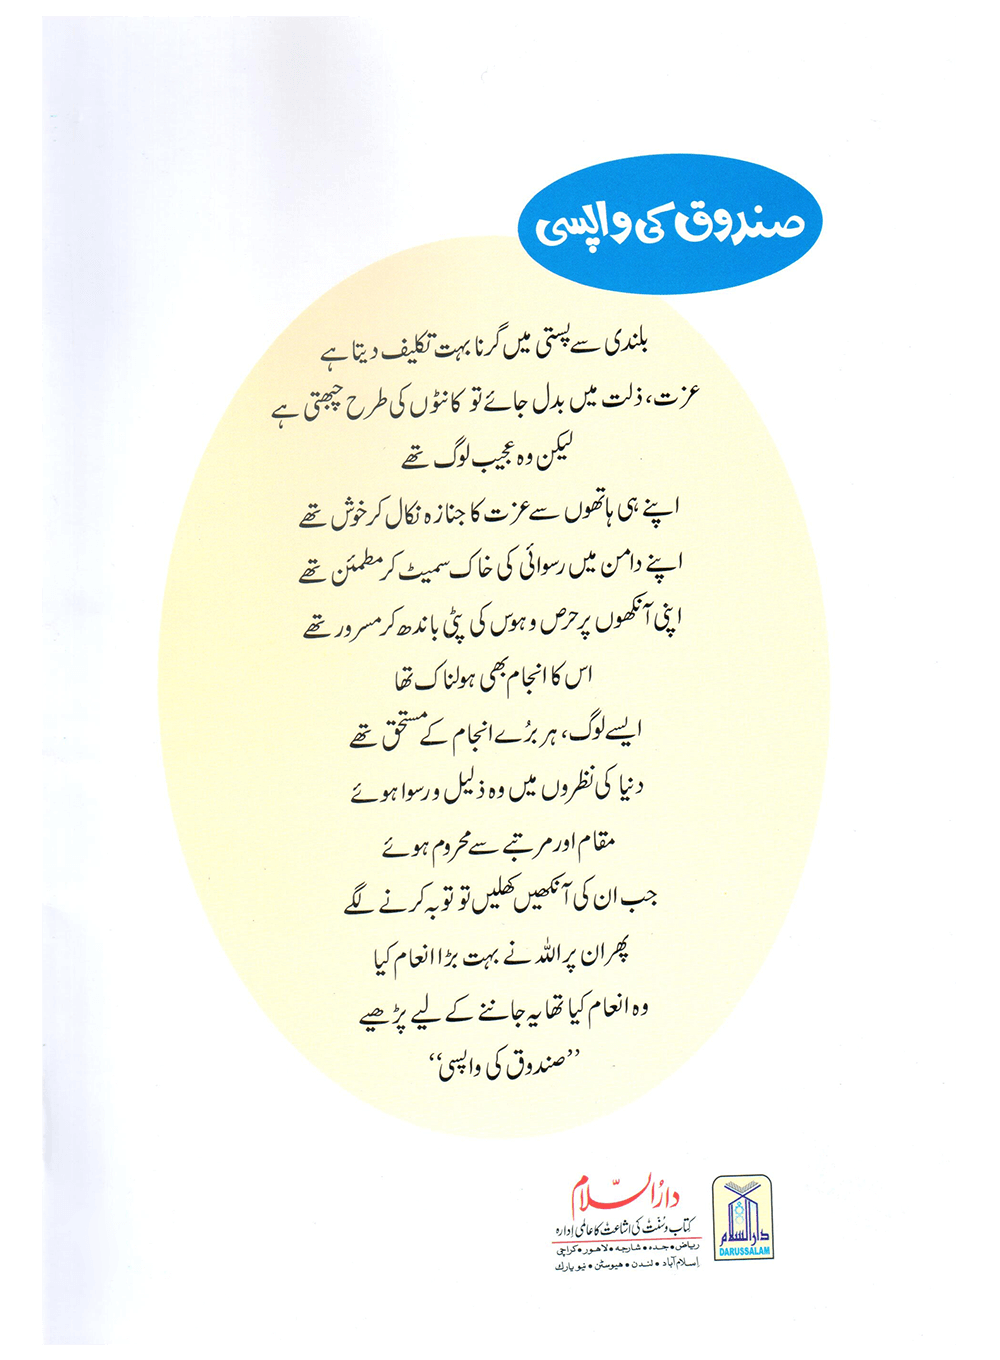 صندوق کی واپسی
بلندی سے پستی میں گرنا بہت تکلیف دیتا ہے
عزت، ذلت میں بدل جائے تو کانٹوں کی طرح چبھتی ہے
لیکن وہ عجیب لوگ تھے
اپنے ہی ہاتھوں سے عزت کا جنازہ نکال کر خوش تھے
اپنے دامن میں رسوائی کی خاک سمیٹ کر مطمئن تھے
اپنی آنکھوں پر حرص و ہوس کی پٹی باندھ کر مسرور تھے
اس کا انجام بھی ہولناک تھا
ایسے لوگ، ہر بُرے انجام کے مستحق تھے
دنیا کی نظروں میں وہ ذلیل و رسوا ہوئے
مقام اور مرتبے سے محروم ہوئے
جب ان کی آنکھیں کھلیں تو توبہ کرنے لگے
پھر ان پر اللہ نے بہت بڑا انعام کیا
وہ انعام کیا تھا یہ جاننے کے لیے پڑھیے
”صندوق کی واپسی“
دارُالسّلام
کتاب و سُنّت کی اشاعت کا عالمی اِدارہ
ریاض • جدہ • شارجہ • لاہور • کراچی
اِسلام آباد • لندن • ہیوسٹن • نیو یارک
دارالسلام
DARUSSALAM